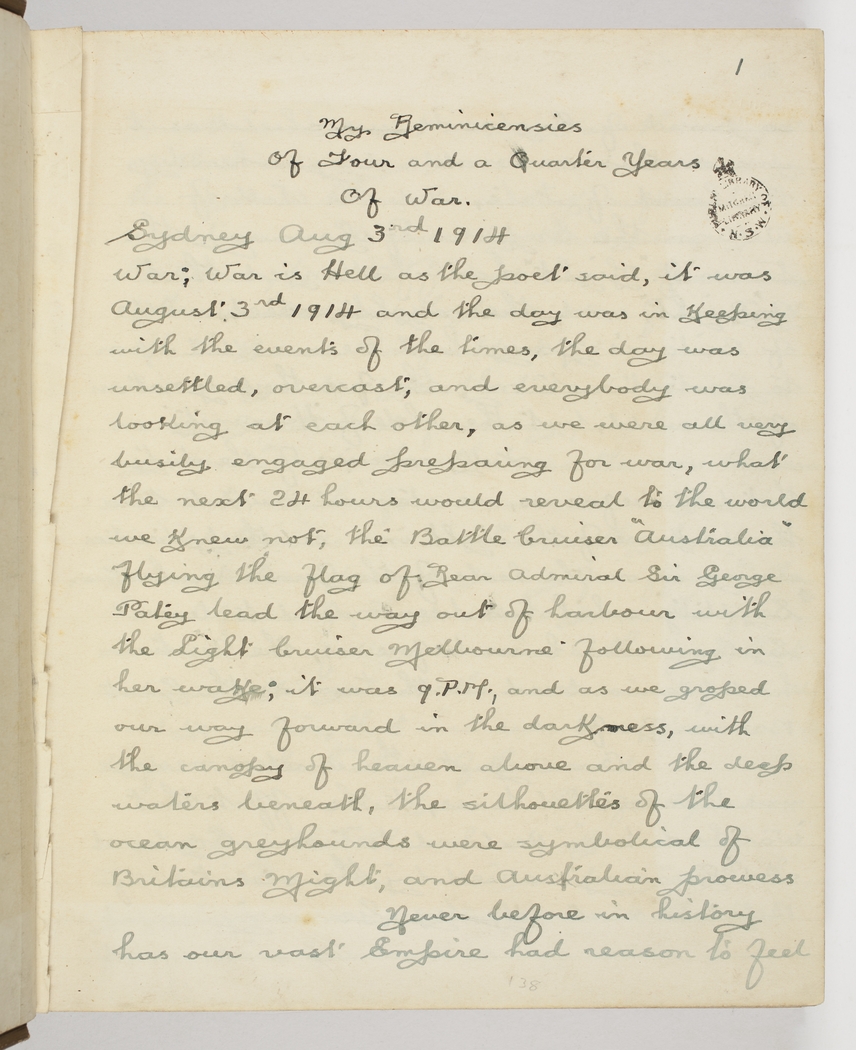 1
My Reminicensies
Of Four and a Quarter Years
Of War.
Sydney Aug 3rd 1914
War; War is Hell as the poet said, it was
August 3rd 1914 and the day was in Keeping
with the events of the times, the day was
unsettled, overcast, and everybody was
looking at each other, as we were all very
busily engaged prepaing for war, what
the next 24 hours would reveal to the world
we Knew not, the Battle Cruiser "Australia"
flying the flag of Rear Admiral Sir George
Patey lead the way out of harbour with
the Light Cruiser Melbourne following in
her wake; it was 9.P.M., and as we groped
our way forward in the darkness, with
the canopy of heaven above and the deep
waters beneath, the silhouettes of the
ocean greyhounds were symbolical of
Britains Might, and Australian prowess
Never before in history
has our vast Empire had reason to feel
138
LIBRARY OF
MITCHELL
LIBRARY
N.S.W.